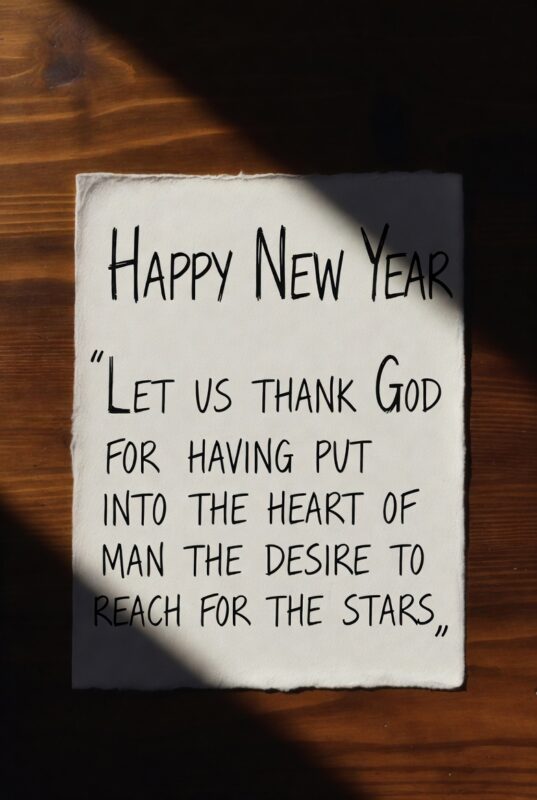 HAPPY NEW YEAR
"LET US THANK GOD
FOR HAVING PUT
INTO THE HEART OF
MAN THE DESIRE TO
REACH FOR THE STARS„